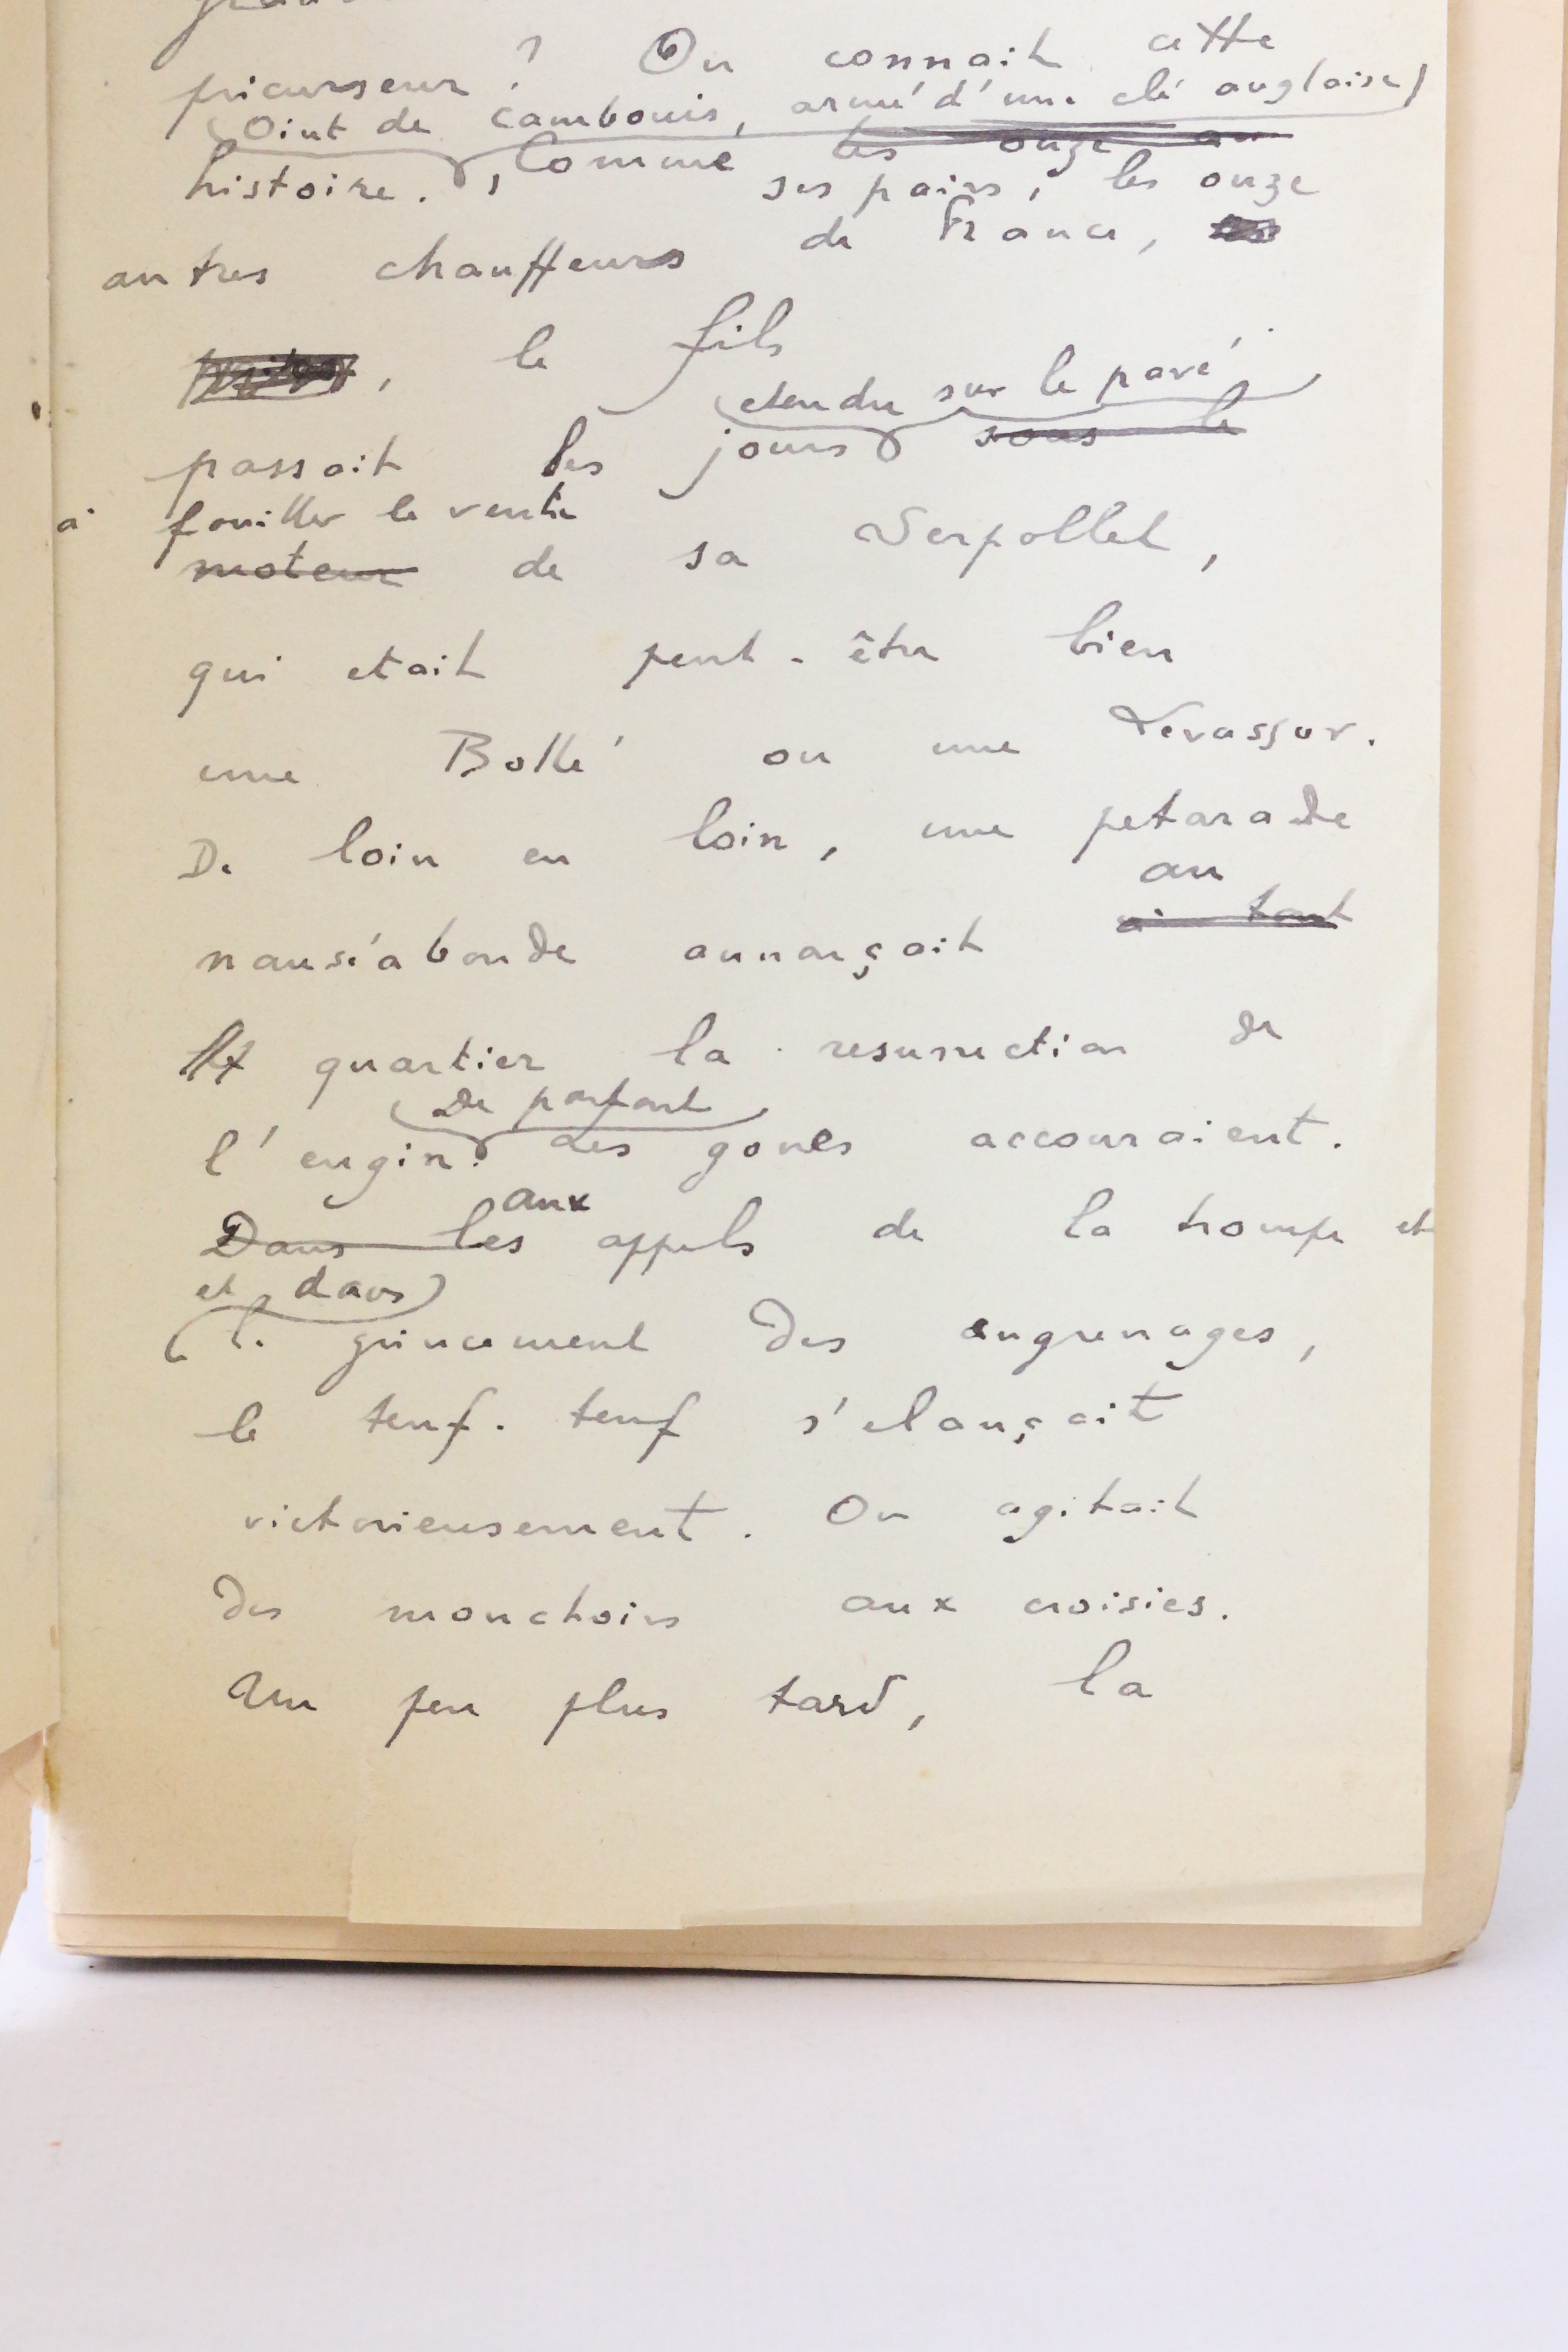 precurseur ? On connait cette
(Oint de cambouis, armé d'une clé anglaise)
histoire. , Comme les onze au
ses pairs, les onze
autres chauffeurs de France,
, le fils
etendu sur le pavé
passait les jours sous le
à fouiller le ventre
moteur de sa Serpollet,
qui etait peut-être bien
une Bollé ou une Levassor.
De loin en loin, une petarade
au
nauséabonde annonçait à tout
quartier la resurrection de
De partout
l'engin. Les gones accouraient.
aux
Dans les appels de la trompe et
et dans
le grincement des engrenages,
le teuf-teuf s'elançait
victorieusement. On agitait
des mouchoirs aux croisées.
Un peu plus tard, la